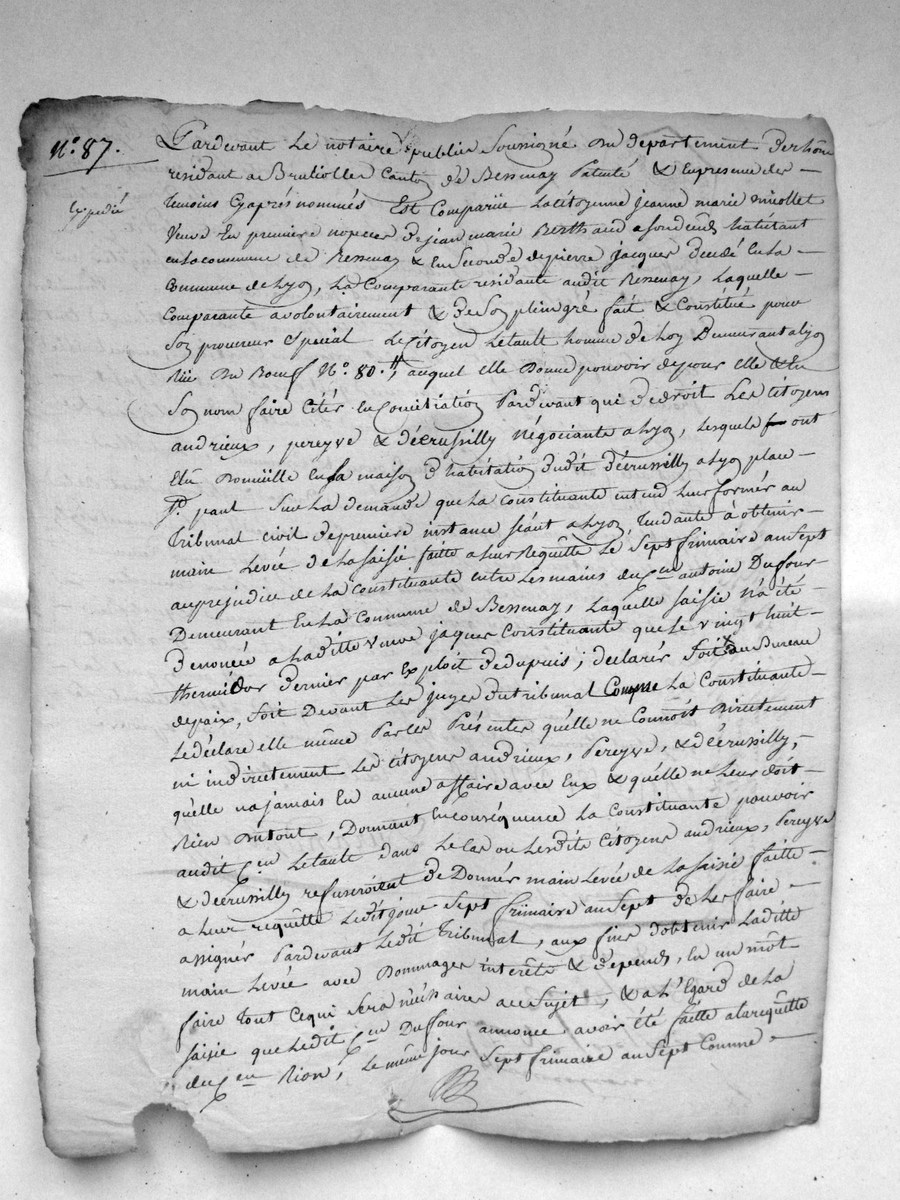 N.° 87.
Expedié
Pardevant Le notaire public Soussigné du departement du rhône
residant a Brulliolles Canton de Bessenay Patenté & En presence des
temoins Cy après nommés Est Comparüe La citoyenne jeanne marie
Veuve En premiere nopces de jean marie Berthaud habitant
en la commune de Bessenay & En Seconde de pierre jacques decedé En La
Commune de Lyon, La Comparante residante audit Bessenay, Laquelle
Comparante a volontairement & de Son plein gré fait & Constitué pour
Son procureur Special Le Citoyen Létault homme de Loy Demeurant a Lyon
Rüe Du Boeuf N.° 80. auquel elle Donne pouvoir de pour elle & En
Son nom faire Citér En Conciliation Pardevant qui de droit Les Citoyens
andrieux, pereyve & décrussilly Négociants a Lyon, lesquels ont
Elu Domicille En la maison d'habitation dudit décrussilly a Lyon place
St. paul Sur La demande que La Constituante entend Leur formér au
Tribunal Civil de premiere instance séant a Lyon tendante à obtenir
main Levée de La Saisie faitte a leur Requette Le Sept frimaire an Sept
au prejudice de La Constituante entre Les mains du Cen. antoine Duffour
Demeurant En La Commune de Bessenay, Laquelle Saisie n'a été
denoncée a Laditte veuve jacques Constituante que Le vingt huit
thermidor dernier par Exploit de depuis; declarér Soit au Bureau
de paix, Soit Devant Les juges du tribunal Comme La Constituante
Le declare elle même Par Les Présentes qu'elle ne Connoit Directement
ni indirectement Les Citoyens andrieux, Pereyve, & décrussilly,
qu'elle na jamais Eu aucune affaire avec Eux & qu'elle ne Leur doit
Rien Du tout, Donnant En conséquence La Constituante pouvoir
audit Cen. Létault dans Le Cas ou Lesdits Citoyens andrieux, Pereyve
& décrussilly refuseroient de Donnér main Levée de La Saisie faitte
a Leur requette Ledit jour Sept frimaire an Sept de Les faire
assignér Pardevant Ledit Tribunal, aux fins d'obtenir Laditte
main Levée avec Dommages interêts & depends, En un môt
faire tout Ce qui Sera nécéssaire au Sujet, & a L'Egard de La
Saisie que Ledit Cen. Duffour annonce avoir été faitte a la requette
du Cen. Rion, Le même jour Sept frimaire an Sept Comme